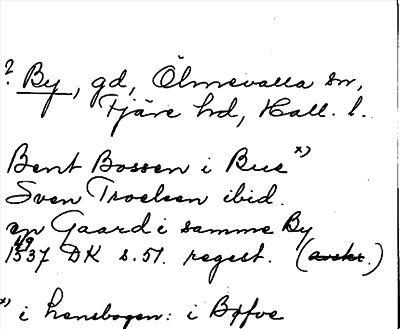 ? By, gd, Ölmevalla sn,
Fjäre hd, Hall. l.
Bent Bossen i Bue x)
Sven Troelsen ibid.
en Gaard i samme By
19/9 1537 DK s. 51. regest. (avskr.)
x) i Lensbogen: i Bøfve